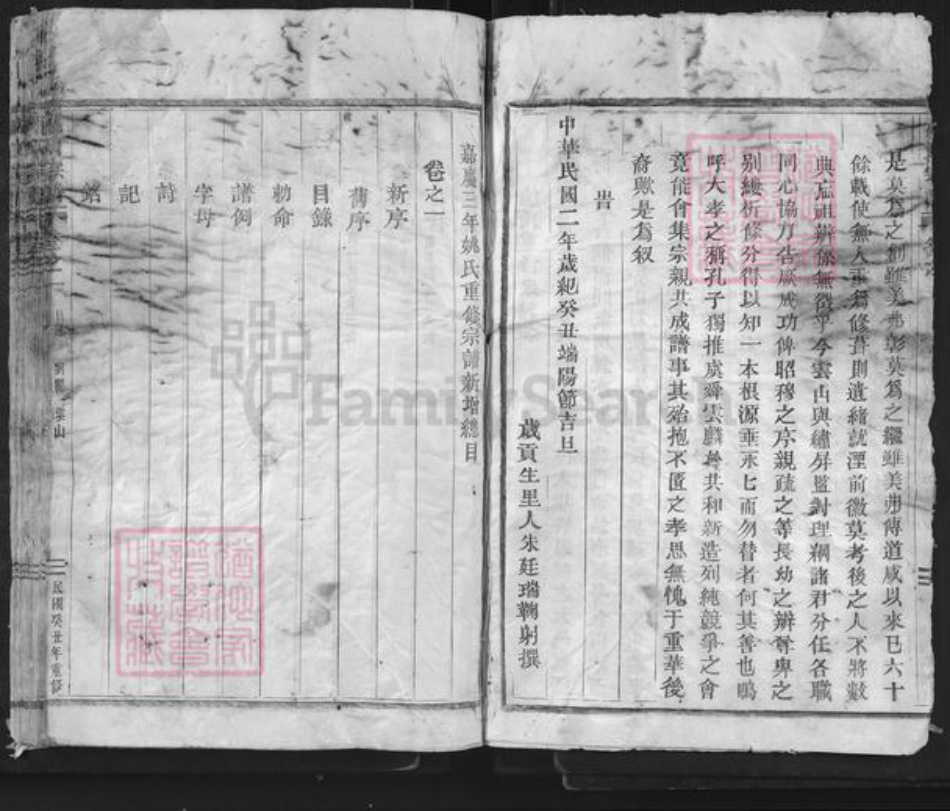 是莫爲之創雖美弗彰莫爲之繼雖美弗傳道咸以來已六十
餘載使無人焉爲修葺則遺緒就湮前徽莫考後之人不將數
典忘祖辨係無徵乎今雲山與繡屏監對理綱諸君分任各職
同心協力告厥成功俾昭穆之序親疏之等長幼之辨尊卑之
別縷析條分得以知一本根源垂永匕而勿替者何其善也嗚
呼大孝之稱孔子獨推虞舜雲麟等共和新造列純競爭之會
竟能會集宗親共成譜事其殆抱不匱之孝思無愧于重華後
裔歟是爲叙
旹
中華民國二年歲紀癸丑端陽節吉旦
歲貢生里人朱廷瑞鞠躬撰
嘉慶三年姚氏重修宗譜新增總目
卷之一
新序
舊序
目錄
勅命
譜例
字母
詩
記
民國癸丑年重修
FamilySearch